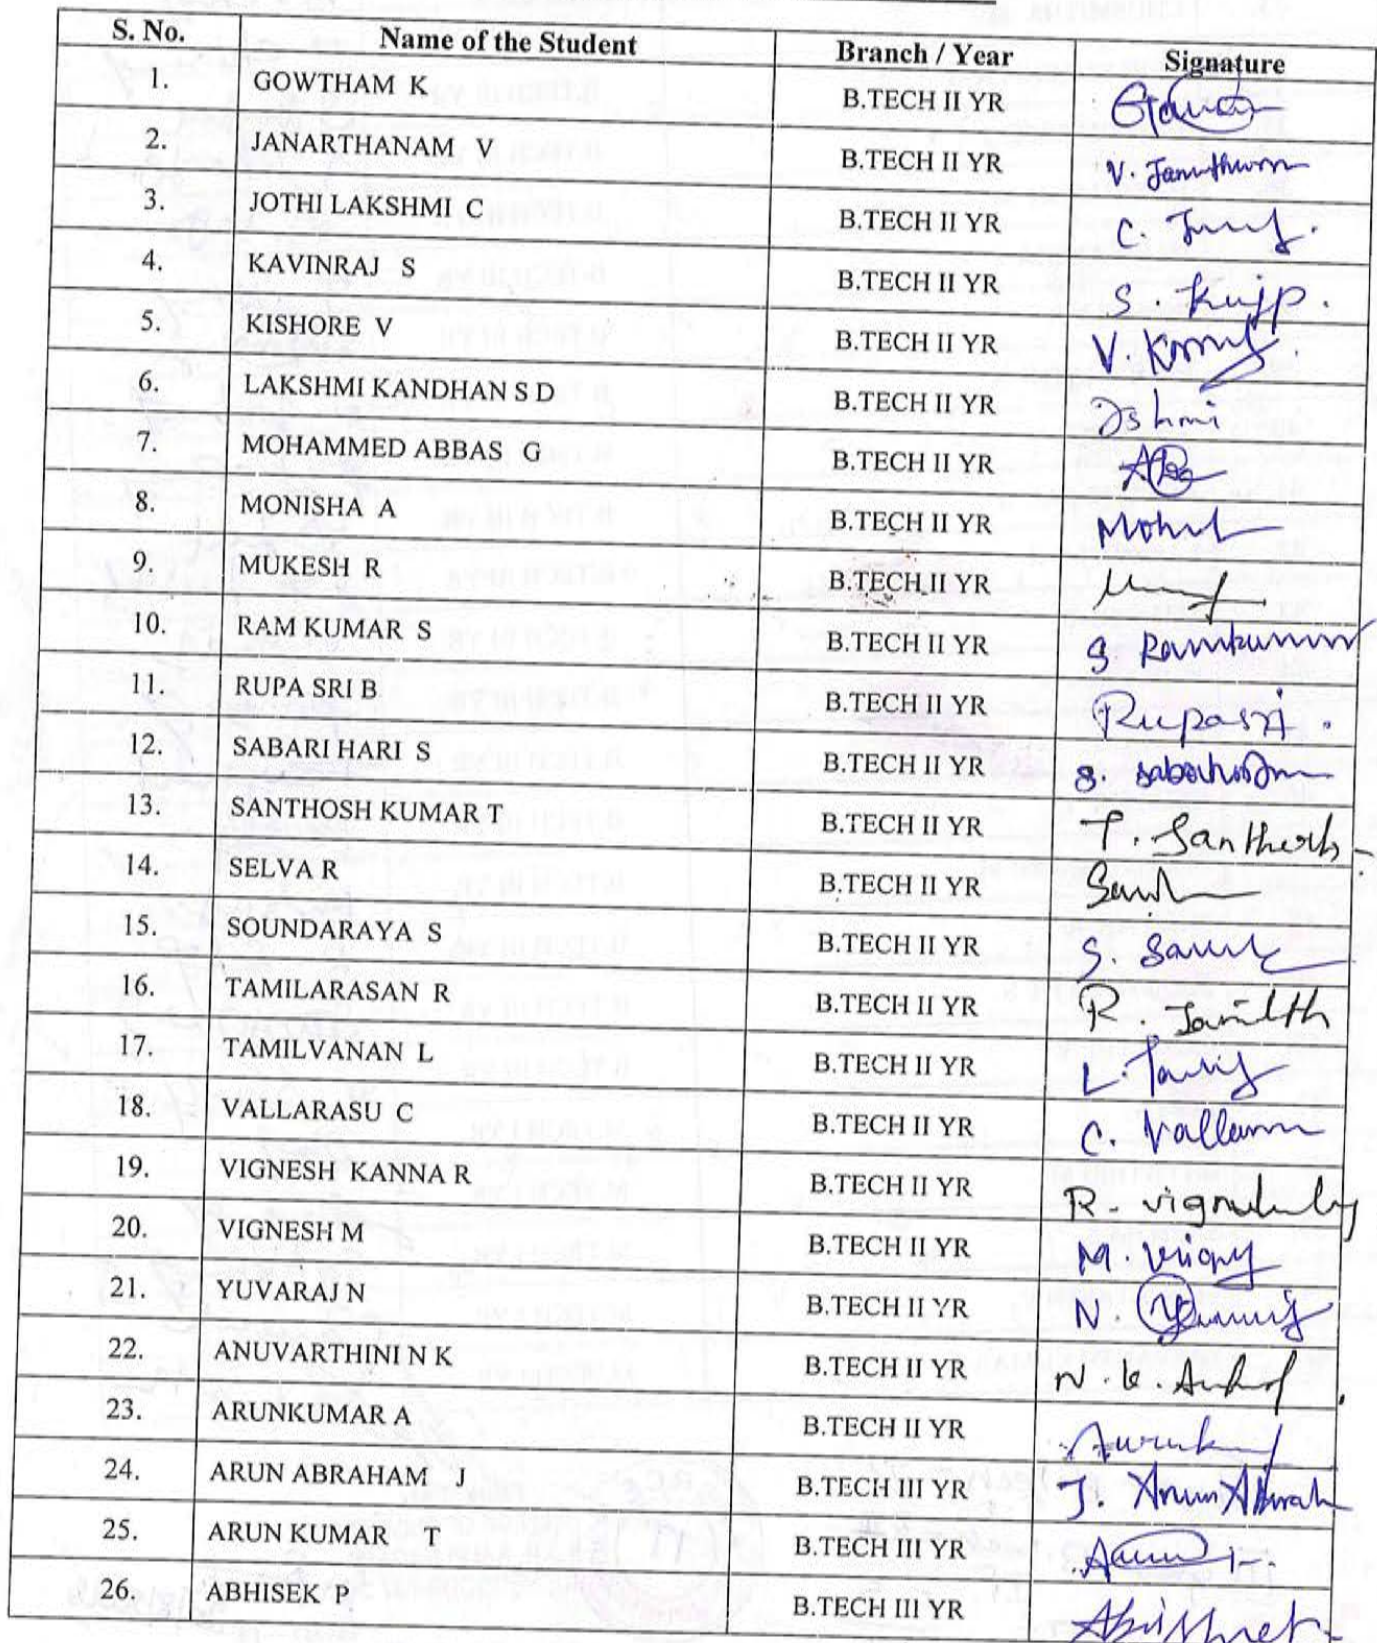 S. No. Name of the Student Branch / Year Signature
1. GOWTHAM K B.TECH II YR
2. JANARTHANAM V B.TECH II YR V.
3. JOTHI LAKSHMI C B.TECH II YR C.
4. KAVINRAJ S B.TECH II YR S.
5. KISHORE V B.TECH II YR V.
6. LAKSHMI KANDHAN S D B.TECH II YR
7. MOHAMMED ABBAS G B.TECH II YR
8. MONISHA A B.TECH II YR
9. MUKESH R B.TECH II YR
10. RAM KUMAR S B.TECH II YR S. Ramkumar
11. RUPA SRI B B.TECH II YR Rupasri.
12. SABARI HARI S B.TECH II YR S.
13. SANTHOSH KUMAR T B.TECH II YR T. Santhosh
14. SELVA R B.TECH II YR
15. SOUNDARAYA S B.TECH II YR S.
16. TAMILARASAN R B.TECH II YR R.
17. TAMILVANAN L B.TECH II YR L.
18. VALLARASU C B.TECH II YR C.
19. VIGNESH KANNA R B.TECH II YR R.
20. VIGNESH M B.TECH II YR M.
21. YUVARAJ N B.TECH II YR N.
22. ANUVARTHINI N K B.TECH II YR N.K.
23. ARUNKUMAR A B.TECH II YR
24. ARUN ABRAHAM J B.TECH III YR J. Arun Abrah
25. ARUN KUMAR T B.TECH III YR
26. ABHISEK P B.TECH III YR